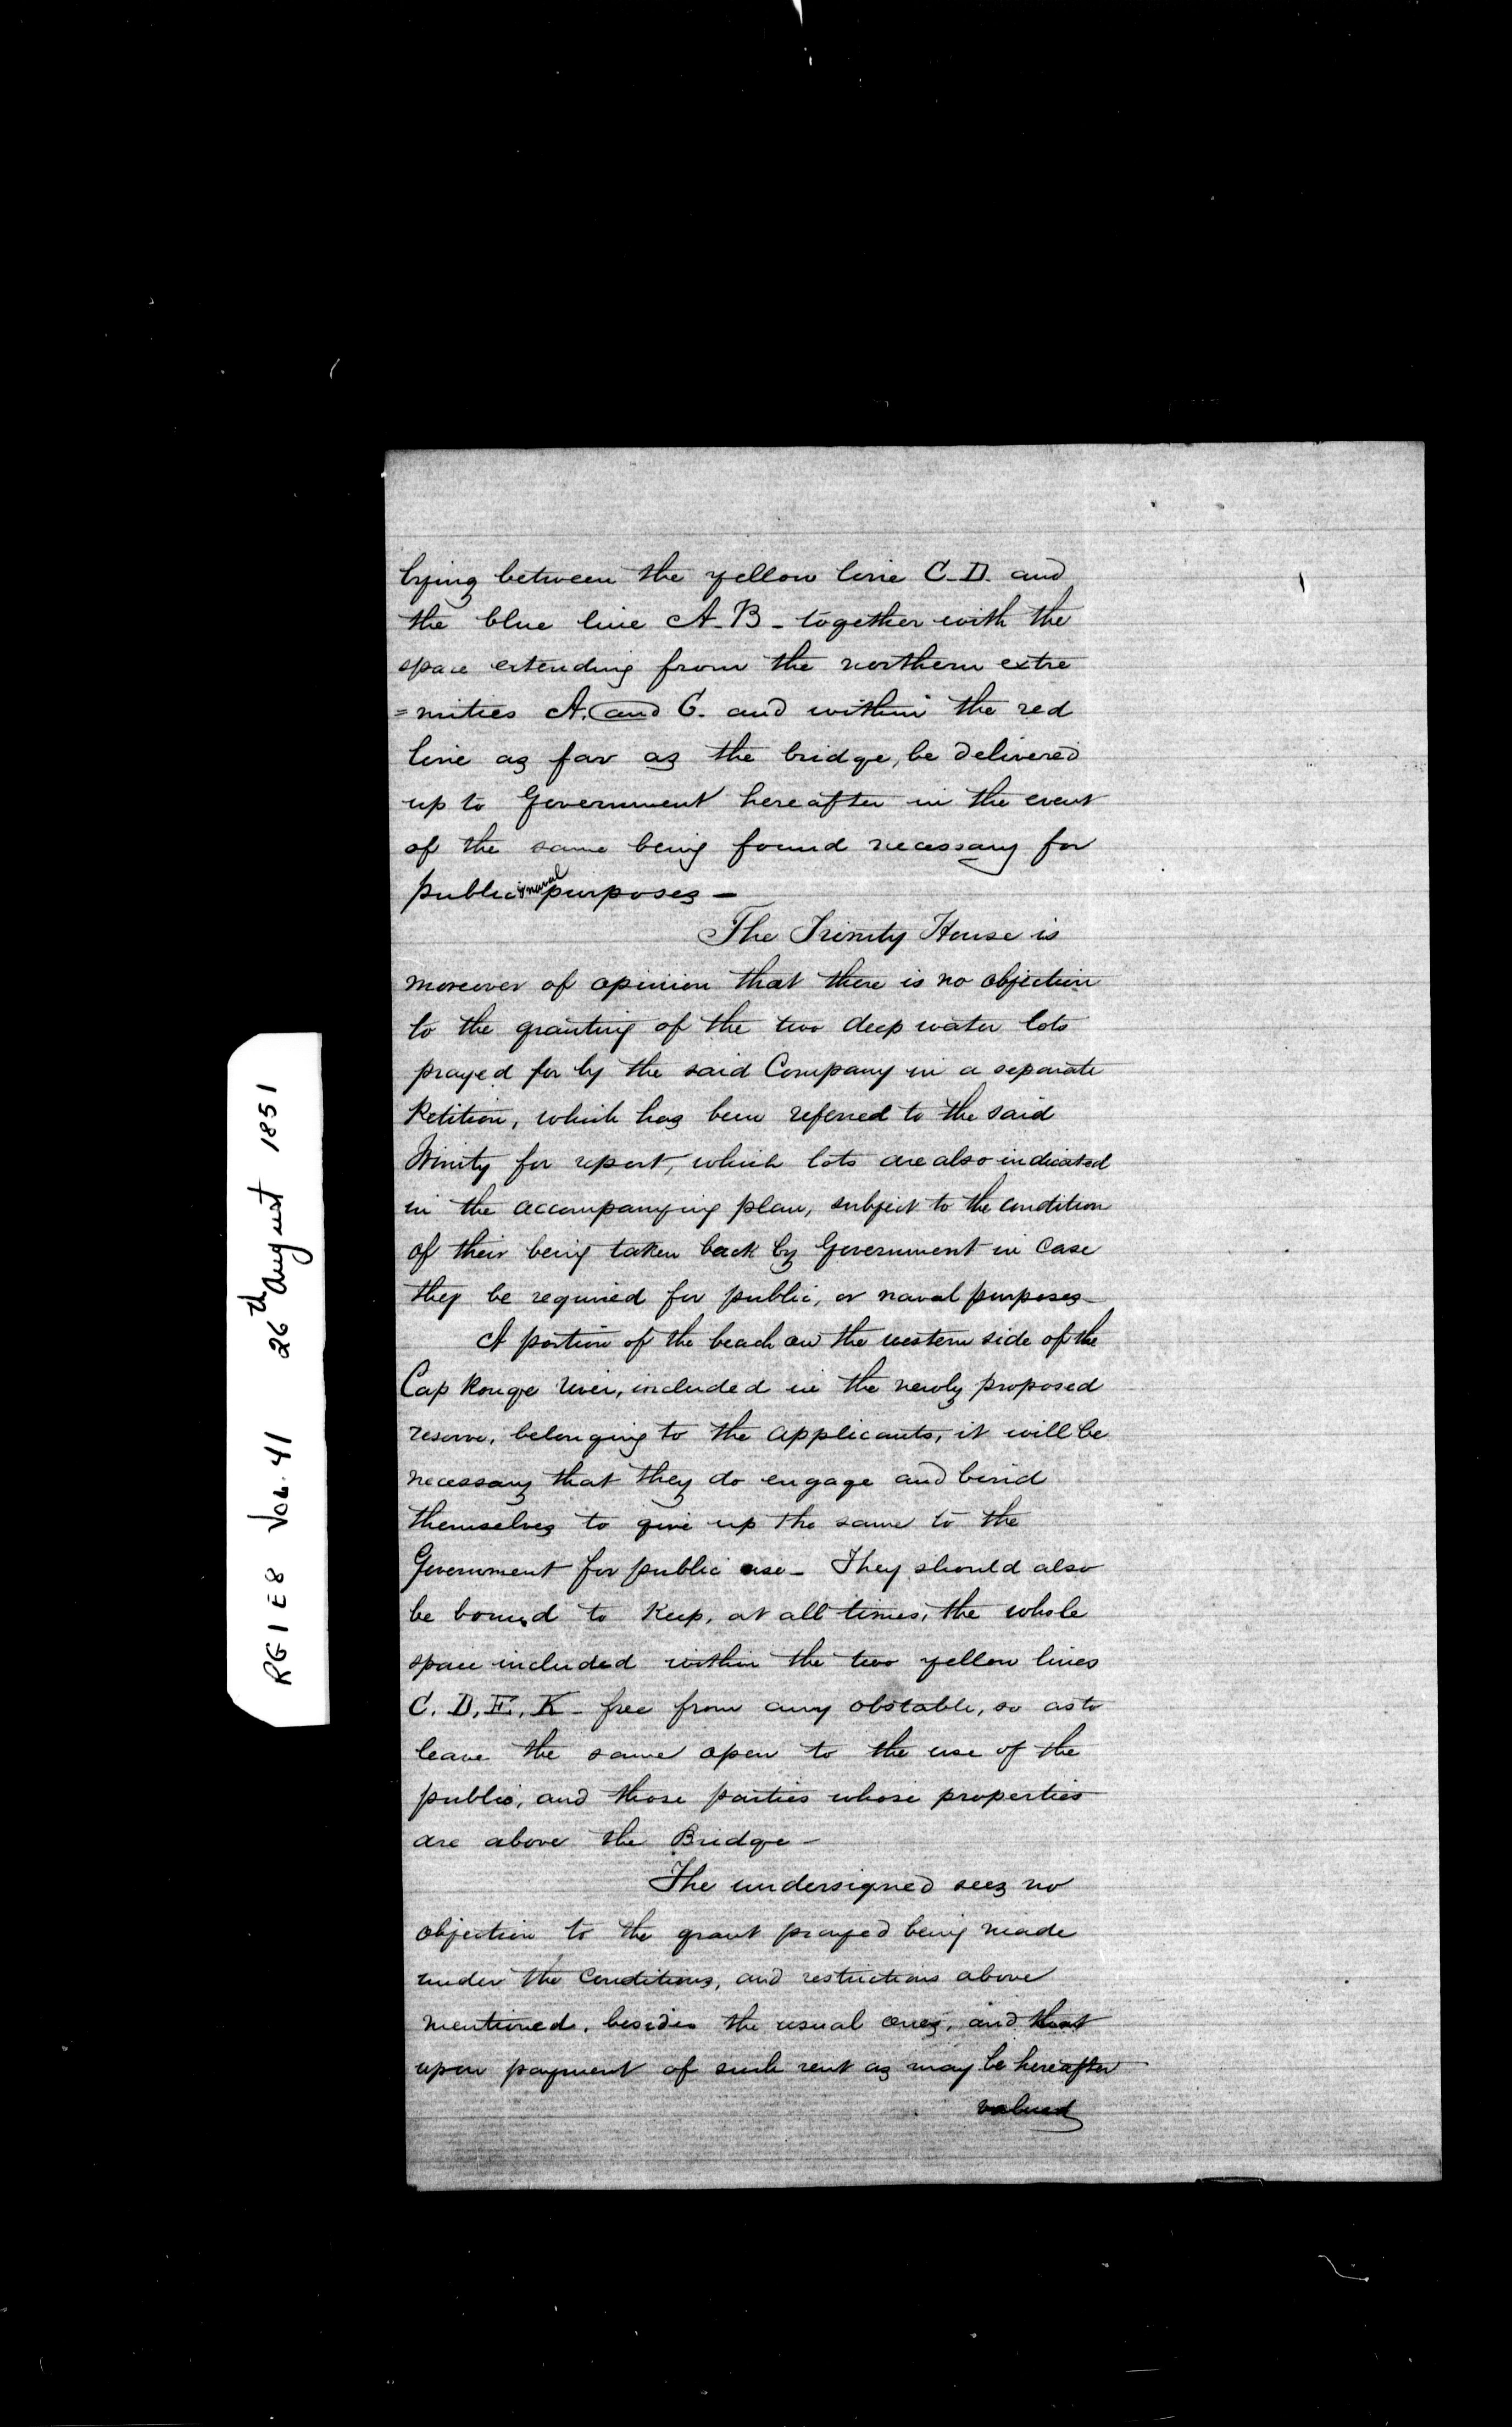 lying between the yellow line C-D- and
the blue line A-B- together with the
space extending from the northern extre
=mities A. and C. and within the red
line as far as the bridge, be delivered
up to Government hereafter in the event
of the same being found necessary for
public & naval purposes -
The Trinity House is
moreover of opinion that there is no objection
to the granting of the two deep water lots
prayed for by the said Company in a separate
Petition, which has been referred to the said
Trinity for report, which lots are also indicated
in the accompanying plan, subject to the condition
of their being taken back by Government in case
they be required for public, or naval purposes-
A portion of the beach on the western side of the
Cap Rouge River, included in the newly proposed
reserve, belonging to the applicants, it will be
necessary that they do engage and bind
themselves to give up the same to the
Government for public use- They should also
be bound to keep, at all times, the whole
space included within the two yellow lines
C. D, E, K- free from any obstable, so as to
leave the same open to the use of the
public, and those parties whose properties
are above the Bridge-
The undersigned sees no
objection to the grant prayed being made
under the conditions, and restrictions above
mentioned, besides the usual ones, and that
upon payment of such rent as may be hereafter
valued
RG1 E8 Vol. 41 26th August 1851